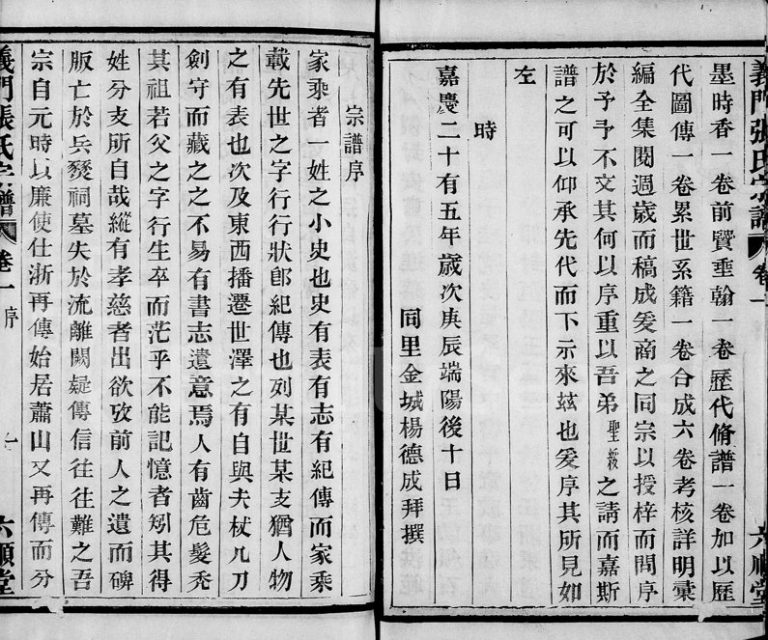 義門張氏宗譜 卷一 六順堂
墨時香一卷前賢垂翰一卷歷代脩譜一卷加以歷
代圖傳一卷累世系籍一卷合成六卷考核詳明彙
編全集閱過歲而稿成爰商之同宗以授梓而問序
於予予不文其何以序重以吾弟聖毅之請而嘉斯
譜之可以仰承先代而下示來玆也爰序其所見如
左
時
嘉慶二十有五年歲次庚辰端陽後十日
同里金城楊德成拜撰
宗譜序
家乘者一姓之小史也史有表有志有紀傳而家乘
載先世之字行行狀卽紀傳也列某世某支猶人物
之有表也次及東西播遷世澤之有自與夫杖几刀
劍守而藏之之不易有書志遺意焉人有齒危髮禿
其祖若父之字行生卒而茫乎不能記憶者矧其得
姓分支所自哉縱有孝慈者出欲攷前人之遺而碑
版亡於兵燹祠墓失於流離闕疑傳信往往難之吾
宗自元時以廉使仕浙再傳始居蕭山又再傳而分
義門張氏宗譜 卷一 序 一 六順堂